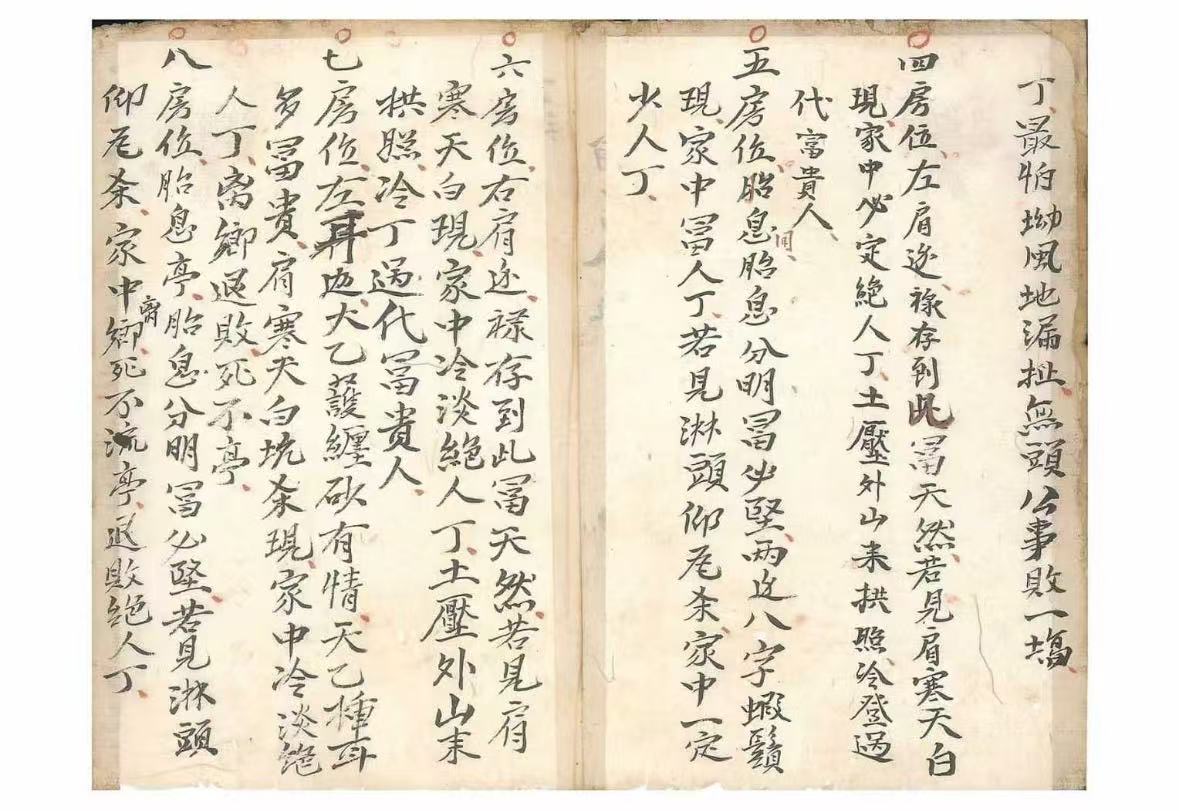 丁最怕坳風地漏扯無頭公事敗一塲
四房位左肩边禄存到此冨天然若見肩寒天白
現家中必定絶人丁土壓外山来拱照冷登過
代富貴人
五房位胎息胎息分明冨必堅两边八字蝦鬚
現家中冨人丁若見淋頭仰瓦杀家中一定
少人丁
六房位右肩边禄存到此冨天然若見肩
寒天白現家中冷淡絶人丁土壓外山来
拱照冷丁過代冨貴人
七房位左耳边犬乙護纏砂有情天乙捶耳
多冨貴肩寒天白坑杀現家中冷淡绝
人丁离鄉退敗死不亭
八房位胎息亭胎息分明冨必堅若見淋頭
仰瓦杀家中离鄉死不流亭退敗绝人丁